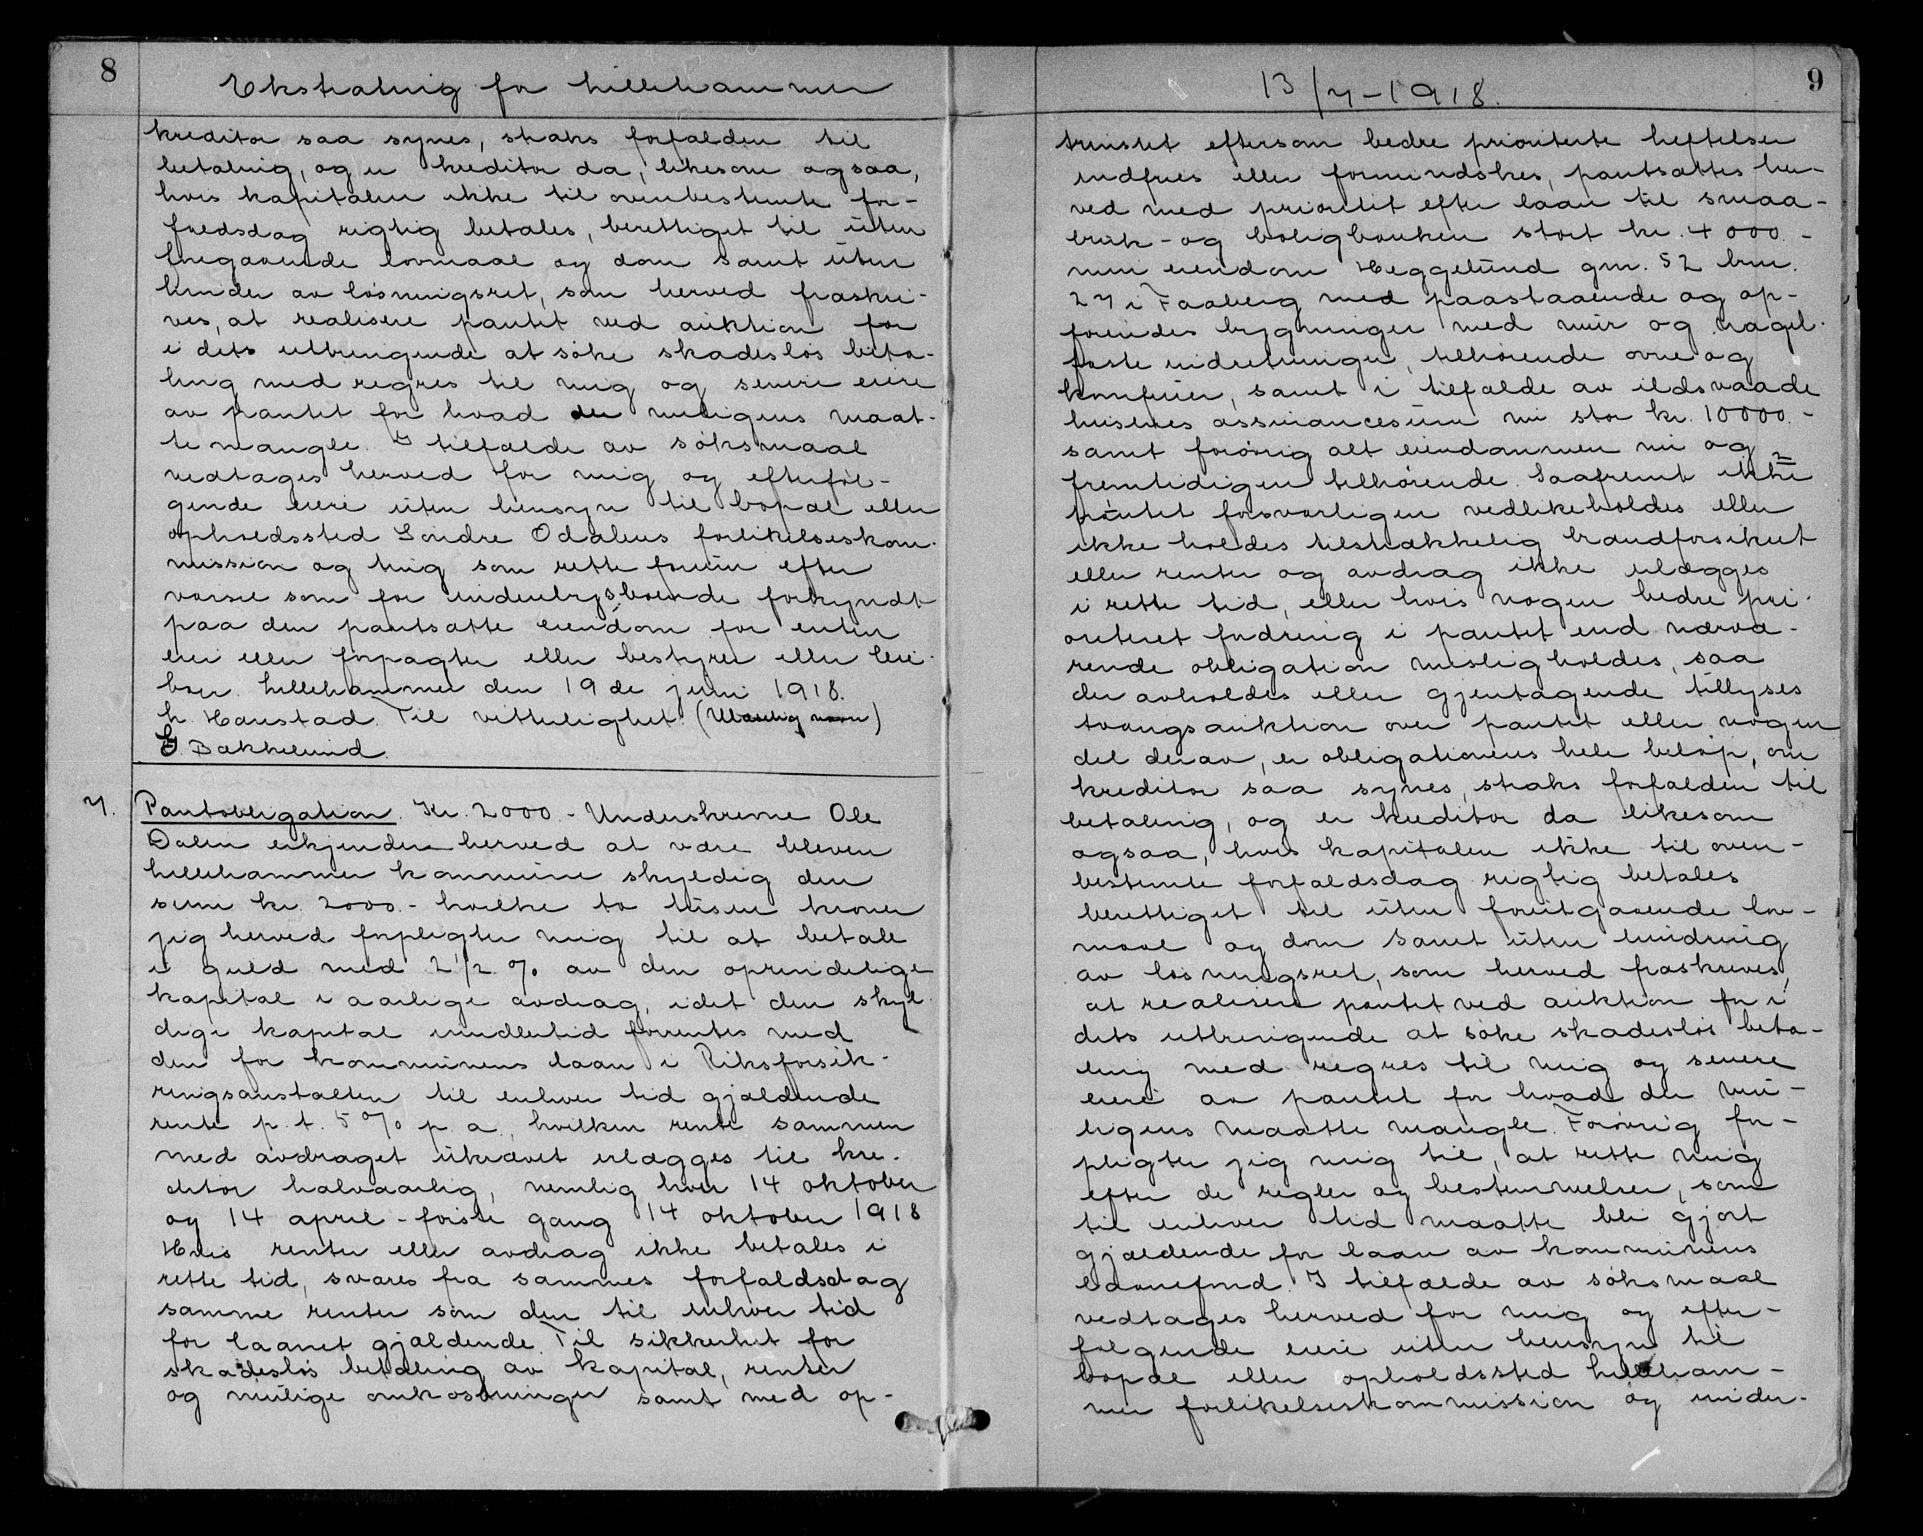 8
Ekstrating for Lillehammer
kreditor saa synes, straks forfalden til
betaling, og er kreditor da, likesom ogsaa,
hvis kapitalen ikke til ovenbestemte for-
faldsdag rigtig betales, berettiget til uten
foregaaende lovmaal og dom samt uten
hinder av løsningsret, som herved fraskri-
ves, at realisere pantet ved auktion for
i dets utbringende at søke skadesløs beta-
ling med regres til mig og senere eiere
av pantet for hvad der muligens maat-
te mangle. I tilfælde av søksmaal
vedtages herved for mig og efterføl-
gende eiere uten hensyn til bopæl eller
opholdssted Søndre Odalens forlikelseskom-
mission og ting som rette forum efter
varsel som for indenbygsboende forkyndt
paa den pantsatte eiendom for enten
eier eller forpagter eller bestyrer eller lei-
boer. Lillehammer den 19de juni 1918.
L. Haustad. Til vitterlighet: (Ulæselig navn)
E. Bakkelund.
7. Pantobligation. Kr. 2000.- Underskrevne Ole
Dalen erkjender herved at være bleven
Lillehammer kommune skyldig den
sum kr. 2000.- hvilke to tusen kroner
jeg herved forpligter mig til at betale
i guld med 2 1/2 % av den oprindelige
kapital i aarlige avdrag, idet den skyl-
dige kapital imidlertid forrentes med
den for kommunens laan i Riksforsik-
ringsanstalten til enhver tid gjældende
rente p.t. 5 % p.a., hvilken rente sammen
med avdraget ukrævet erlægges til kre-
ditor halvaarlig, nemlig hver 14 oktober
og 14 april - første gang 14 oktober 1918
Hvis renter eller avdrag ikke betales i
rette tid, svares fra sammes forfaldsdag
samme renter som den til enhver tid
for laanet gjældende. Til sikkerhet for
skadesløs betaling av kapital, renter
og mulige omkostninger samt med op-
13/7-1918.
9
trinsret eftersom bedre prioriterte heftelser
indfries eller formindskes, pantsættes her-
ved med prioritet efter laan til smaa-
bruk- og boligbanken stort kr. 4000.-
min eiendom Heggelund gnr. 52 brnr.
27 i Faaberg med paastaaende og op-
førendes bygninger med mur og nagel-
faste indretninger, tilhørende ovne og
komfurer, samt i tilfælde av ildsvaade
husenes assurancesum nu stor kr. 10000.-
samt forøvrig alt eiendommen nu og
fremtidigen tilhørende. Saafremt ikke
pantet forsvarligen vedlikeholdes eller
ikke holdes tilstrækkelig brandforsikret
eller renter og avdrag ikke erlægges
i rette tid, eller hvis nogen bedre pri-
oriteret fordring i pantet end nærvæ-
rende obligation misligholdes, saa
der avholdes eller gjentagende tillyses
tvangsauktion over pantet eller nogen
del derav, er obligationens hele beløp, om
kreditor saa synes, straks forfalden til
betaling, og er kreditor da likesom
ogsaa, hvis kapitalen ikke til oven-
bestemte forfaldsdag rigtig betales
berettiget til uten forutgaaende lov-
maal og dom samt uten hindring
av løsningsret, som herved fraskrives,
at realisere pantet ved auktion for i
dets utbringende at søke skadesløs beta-
ling med regres til mig og senere
eiere av pantet for hvad der mu-
ligens maatte mangle. Forøvrig for-
pligter jeg mig til, at rette mig
efter de regler og bestemmelser, som
til enhver tid maatte bli gjort
gjældende for laan av kommunens
laanefond. I tilfælde av søksmaal
vedtages herved for mig og efter-
følgende eiere uten hensyn til
bopæl eller opholdssted Lilleham-
mer forlikelseskommission og under-